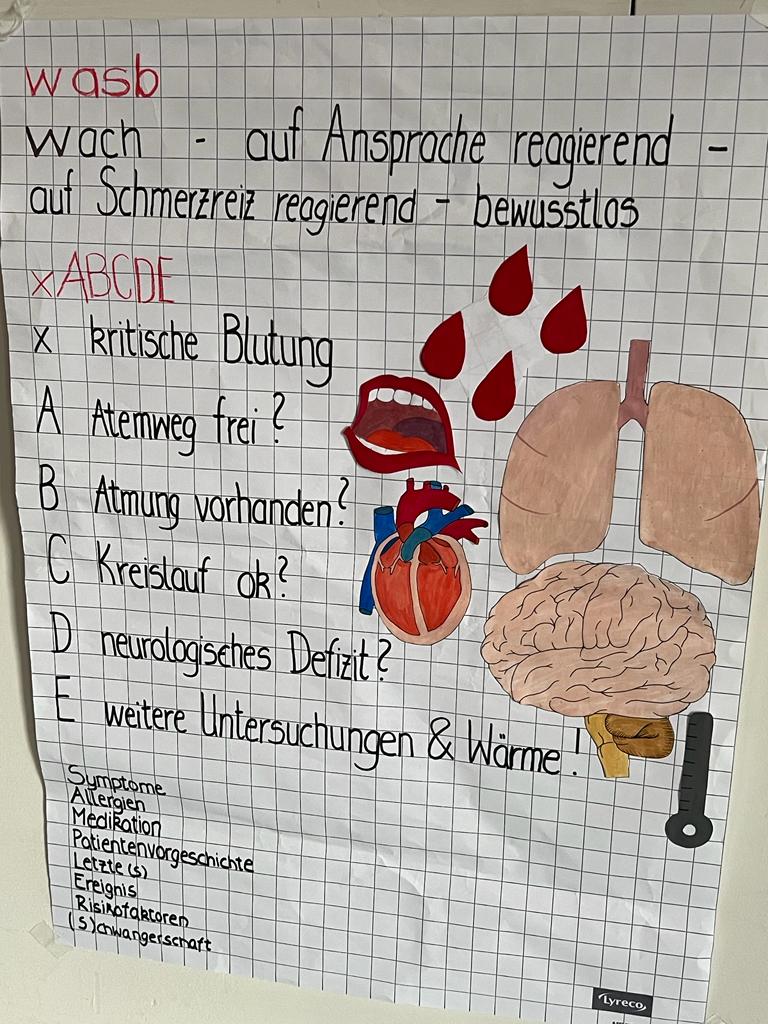 wasb
wach - auf Ansprache reagierend -
auf Schmerzreiz reagierend - bewusstlos
xABCDE
x kritische Blutung
A Atemweg frei?
B Atmung vorhanden?
C Kreislauf ok?
D neurologisches Defizit?
E weitere Untersuchungen & Wärme!
Symptome
Allergien
Medikation
Patientenvorgeschichte
Letzte(s)
Ereignis
Risikofaktoren
(S)chwangerschaft
Lyreco